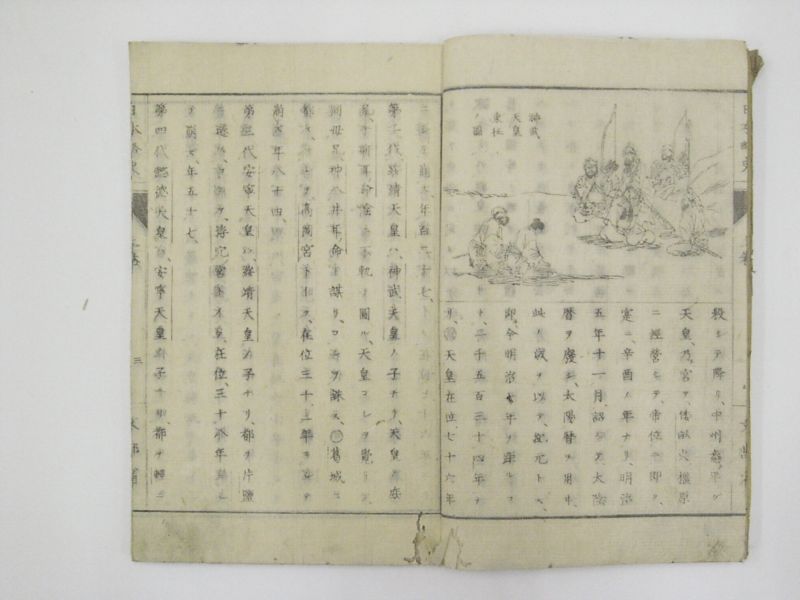 神武
天皇
東征
ノ圖
殺シテ降リ、中州悉ク平グ
天皇、乃宮ヲ、倭畝火橿原
ニ經營シテ、帝位ニ即ク、
實ニ、辛酉ノ年ナリ、明治
五年十一月、詔シテ、太陰
曆ヲ廢シ、太陽曆ヲ用ヰ、
此ノ歲ヲ以テ、紀元トス、
即、今明治七年ヲ距ルコ
ト、二千五百三十四年ナ
リ、天皇在位七十六年
ニシテ崩ズ、年百二十七、
第二代綏靖天皇ハ、神武天皇ノ子ナリ、天皇ノ庶
兄、手研耳命、陰ニ不軌ヲ圖ル、天皇コレヲ覺リ、
同母兄、神八井耳命ト謀リ、コレヲ誅ス、葛城ニ
都シ、高岡宮ト云フ、在位三十三年ヲ
崩ズ年八十四、
第三代安寧天皇ハ、綏靖天皇ノ子ナリ、都ヲ片鹽
ニ遷シ、浮孔宮ト云フ、在位、三十八年ニシ
テ崩ズ、年五十七、
第四代懿德天皇ハ、安寧天皇ノ子ナリ、都ヲ輕ニ
日本略史
三
文部省